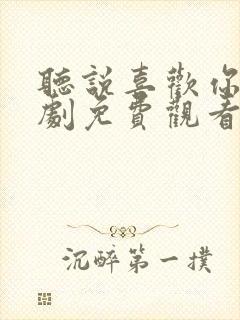 聽說喜歡你
劇免費觀看
沉醉第一撲